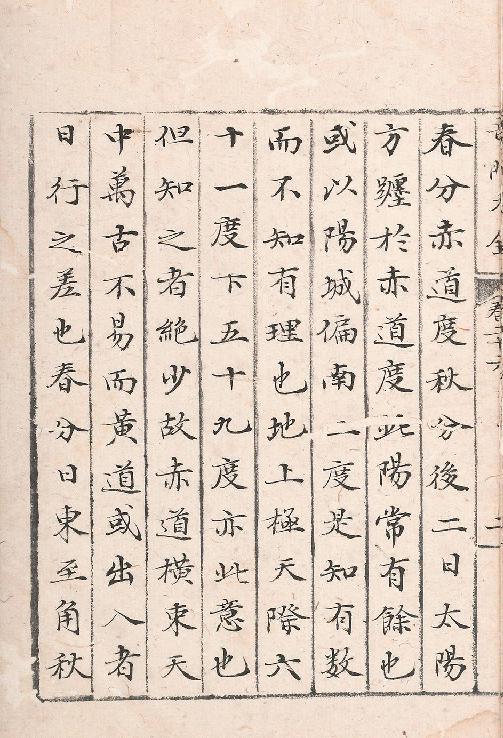 春分赤道度秋分後二日太陽
方躔於赤道度此陽常有餘也
或以陽城偏南二度是知有数
而不知有理也地上極天際六
十一度下五十九度亦此意也
但知之者絶少故赤道横東天
中萬古不易而黄道或出入者
日行之差也春分日東至角秋
卷二十六
二